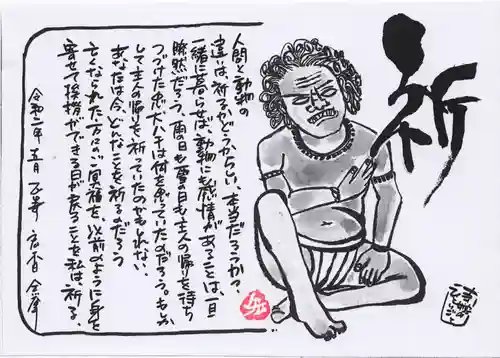 祈
人間と動物の
違いは、祈るかどうからしい、本当だろうか？
一緒に暮らせば、動物にも感情があることは、一目
瞭然だろう、雨の日も雪の日も主人の帰りを待ち
つづけた忠犬ハチは何を思っていたのだろう。もしか
して主人の帰りを祈っていたのかもしれない。
あなたは今、どんなことを祈るのだろう
亡くなられた方々のご冥福を、以前のように身を
寄せて挨拶ができる日が来ることを私は、祈る。
令和二年 五月